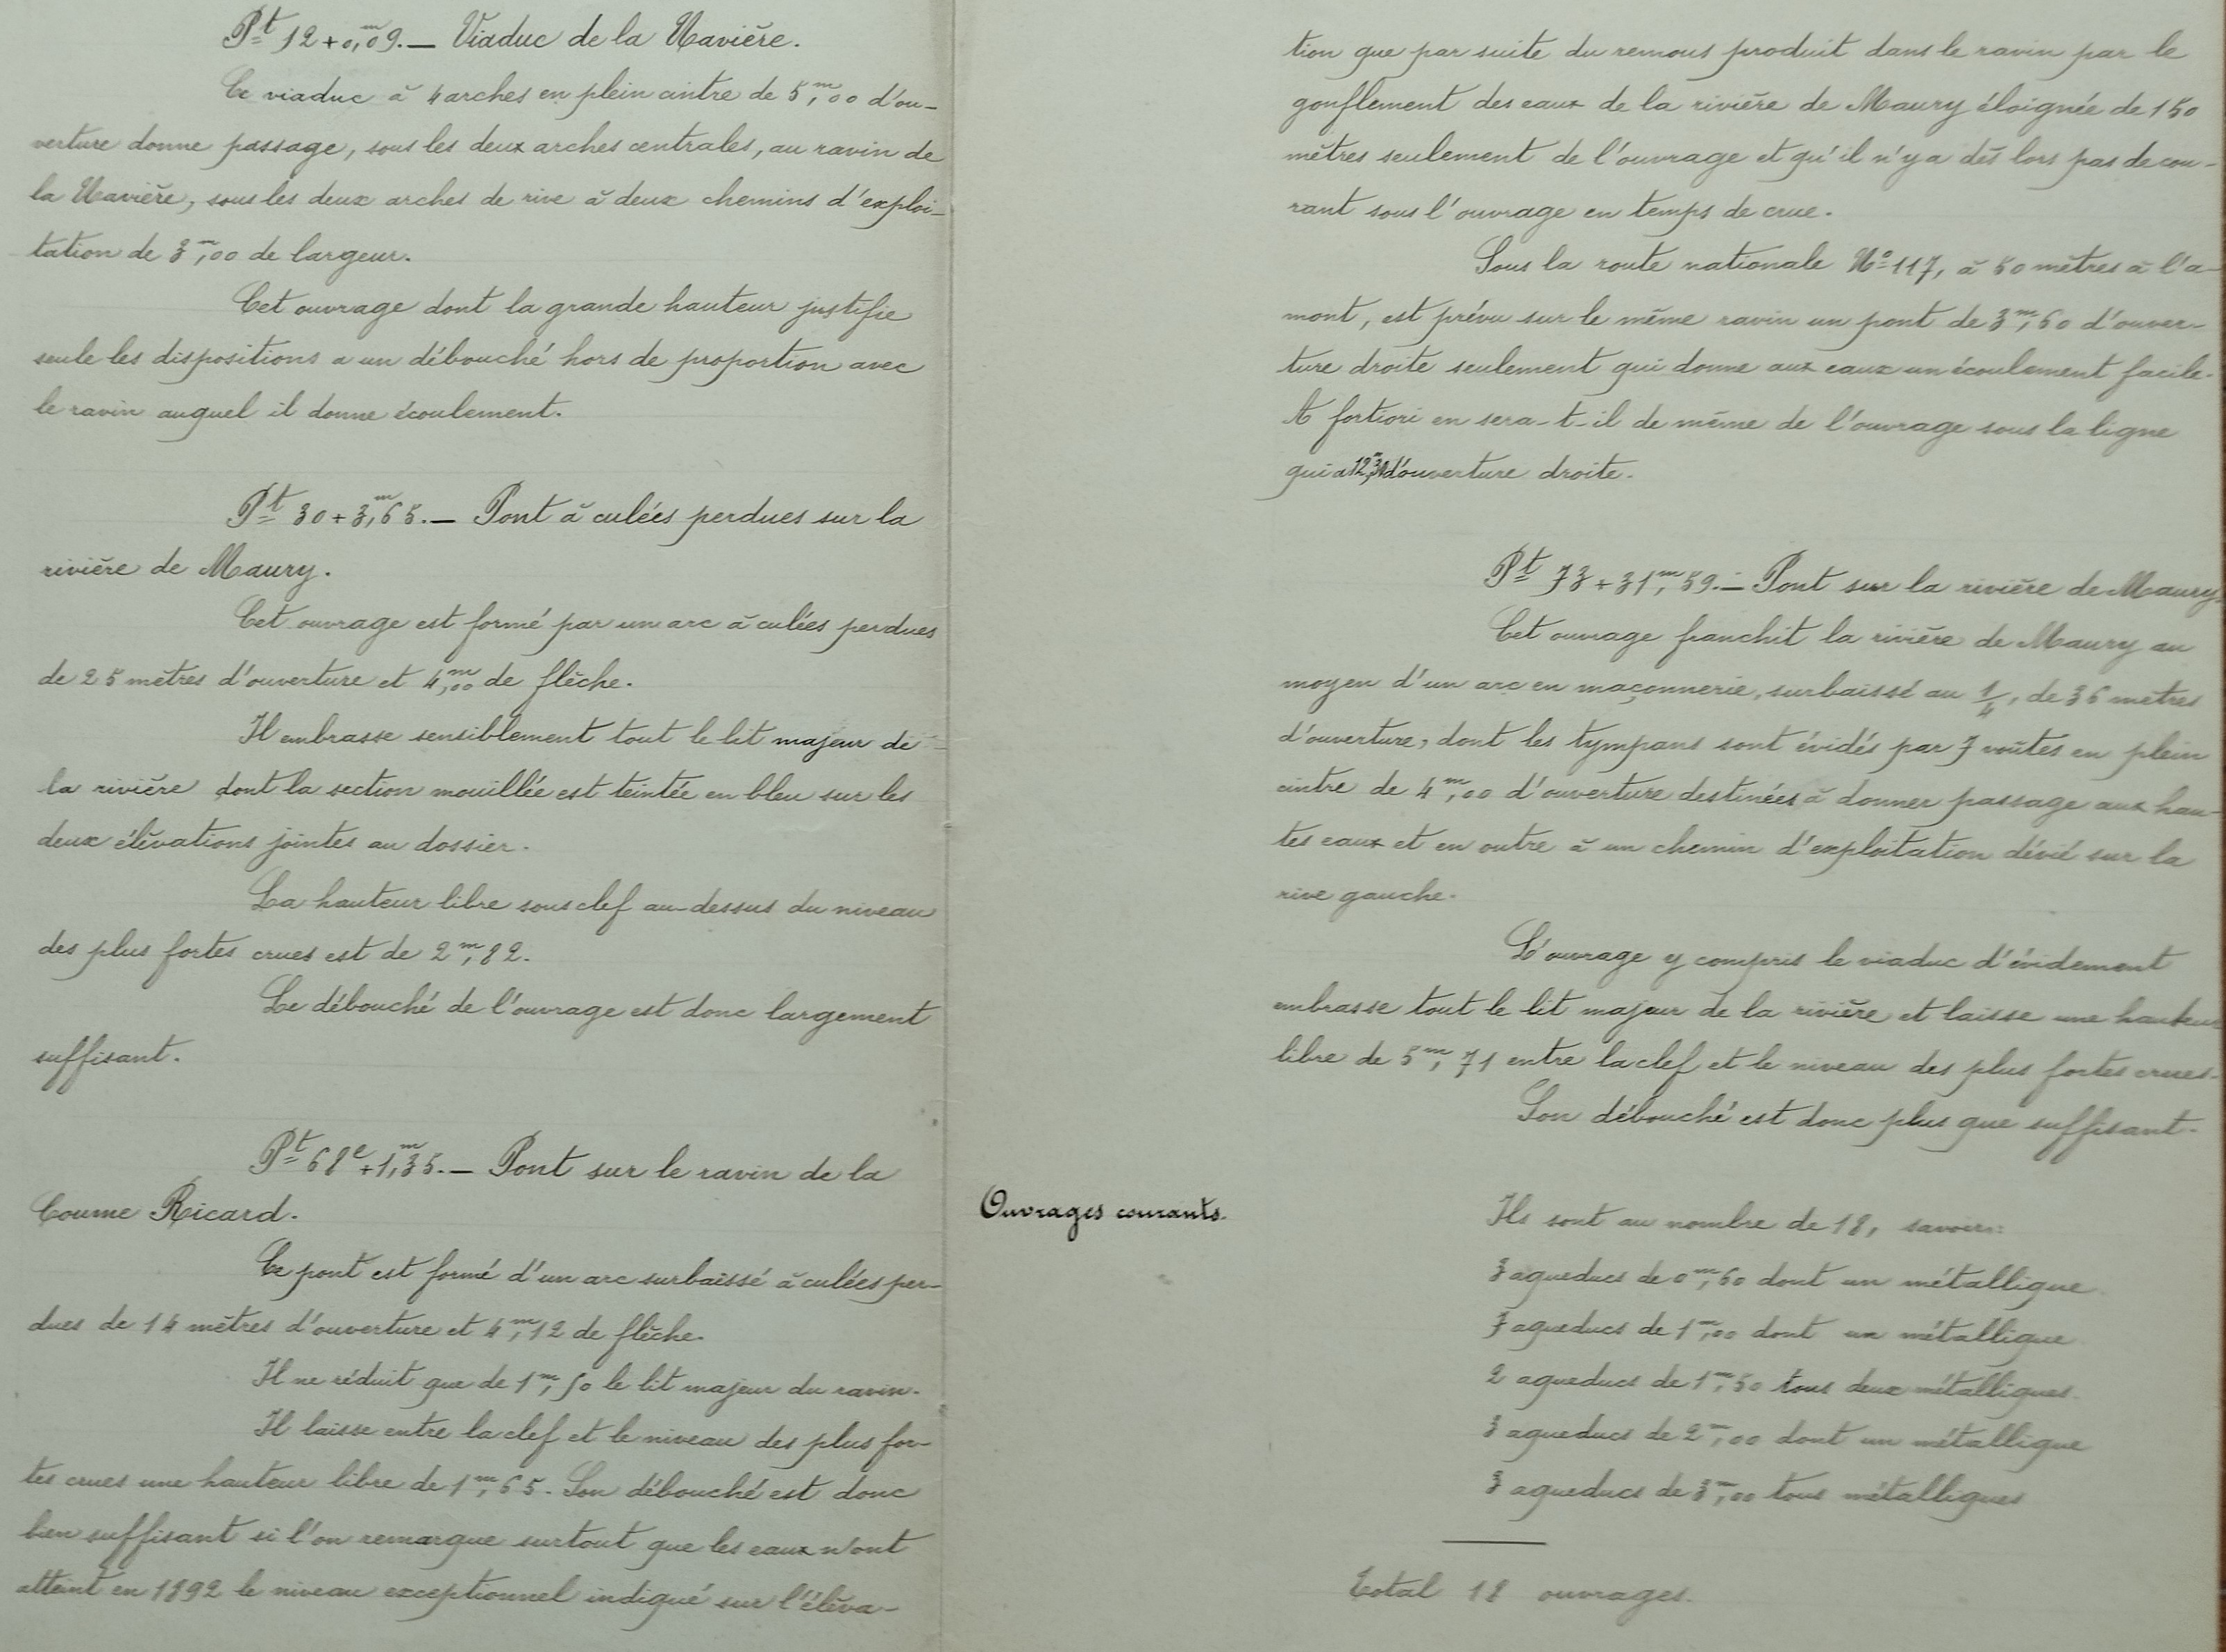 Pt 12+0,m09.— Viaduc de la Navière.
Ce viaduc à 4 arches en plein cintre de 5m,00 d'ou-
verture donne passage, sous les deux arches centrales, au ravin de
la Navière, sous les deux arches de rive à deux chemins d'exploi-
tation de 3m,00 de largeur.
Cet ouvrage dont la grande hauteur justifie
seule les dispositions a un débouché hors de proportion avec
le ravin auquel il donne écoulement.
Pt 30+3,m65.— Pont à culées perdues sur la
rivière de Maury.
Cet ouvrage est formé par un arc à culées perdues
de 25 mètres d'ouverture et 4m,00 de flèche.
Il embrasse sensiblement tout le lit majeur de
la rivière dont la section mouillée est teintée en bleu sur les
deux élévations jointes au dossier.
La hauteur libre sous clef au-dessus du niveau
des plus fortes crues est de 2m,82.
Le débouché de l'ouvrage est donc largement
suffisant.
Pt 68e+1,m35.— Pont sur le ravin de la
Coume Ricard.
Ce pont est formé d'un arc surbaissé à culées per-
dues de 14 mètres d'ouverture et 4m,12 de flèche.
Il ne réduit que de 1m,50 le lit majeur du ravin.
Il laisse entre la clef et le niveau des plus for-
tes crues une hauteur libre de 1m,65. Son débouché est donc
bien suffisant si l'on remarque surtout que les eaux n'ont
atteint en 1892 le niveau exceptionnel indiqué sur l'éléva-
tion que par suite du remous produit dans le ravin par le
gonflement des eaux de la rivière de Maury éloignée de 150
mètres seulement de l'ouvrage et qu'il n'y a dès lors pas de cou-
rant sous l'ouvrage en temps de crue.
Sous la route nationale No 117, à 50 mètres à l'a-
mont, est prévu sur le même ravin un pont de 3m,60 d'ouver-
ture droite seulement qui donne aux eaux un écoulement facile.
A fortiori en sera-t-il de même de l'ouvrage sous la ligne
qui a d'ouverture droite.
Pt 73+31m,59.— Pont sur la rivière de Maury.
Cet ouvrage franchit la rivière de Maury au
moyen d'un arc en maçonnerie, surbaissé au 1/4, de 36 mètres
d'ouverture, dont les tympans sont évidés par 7 voûtes en plein
cintre de 4m,00 d'ouverture destinées à donner passage aux hau-
tes eaux et en outre à un chemin d'exploitation dévié sur la
rive gauche.
L'ouvrage y compris le viaduc d'évidement
embrasse tout le lit majeur de la rivière et laisse une hauteur
libre de 5m,71 entre la clef et le niveau des plus fortes crues.
Son débouché est donc plus que suffisant.
Ouvrages courants.
Ils sont au nombre de 18, savoir:
3 aqueducs de 0m,60 dont un métallique
7 aqueducs de 1m,00 dont un métallique
2 aqueducs de 1m,50 tous deux métalliques.
3 aqueducs de 2m,00 dont un métallique
3 aqueducs de 3m,00 tous métalliques
Total 18 ouvrages.